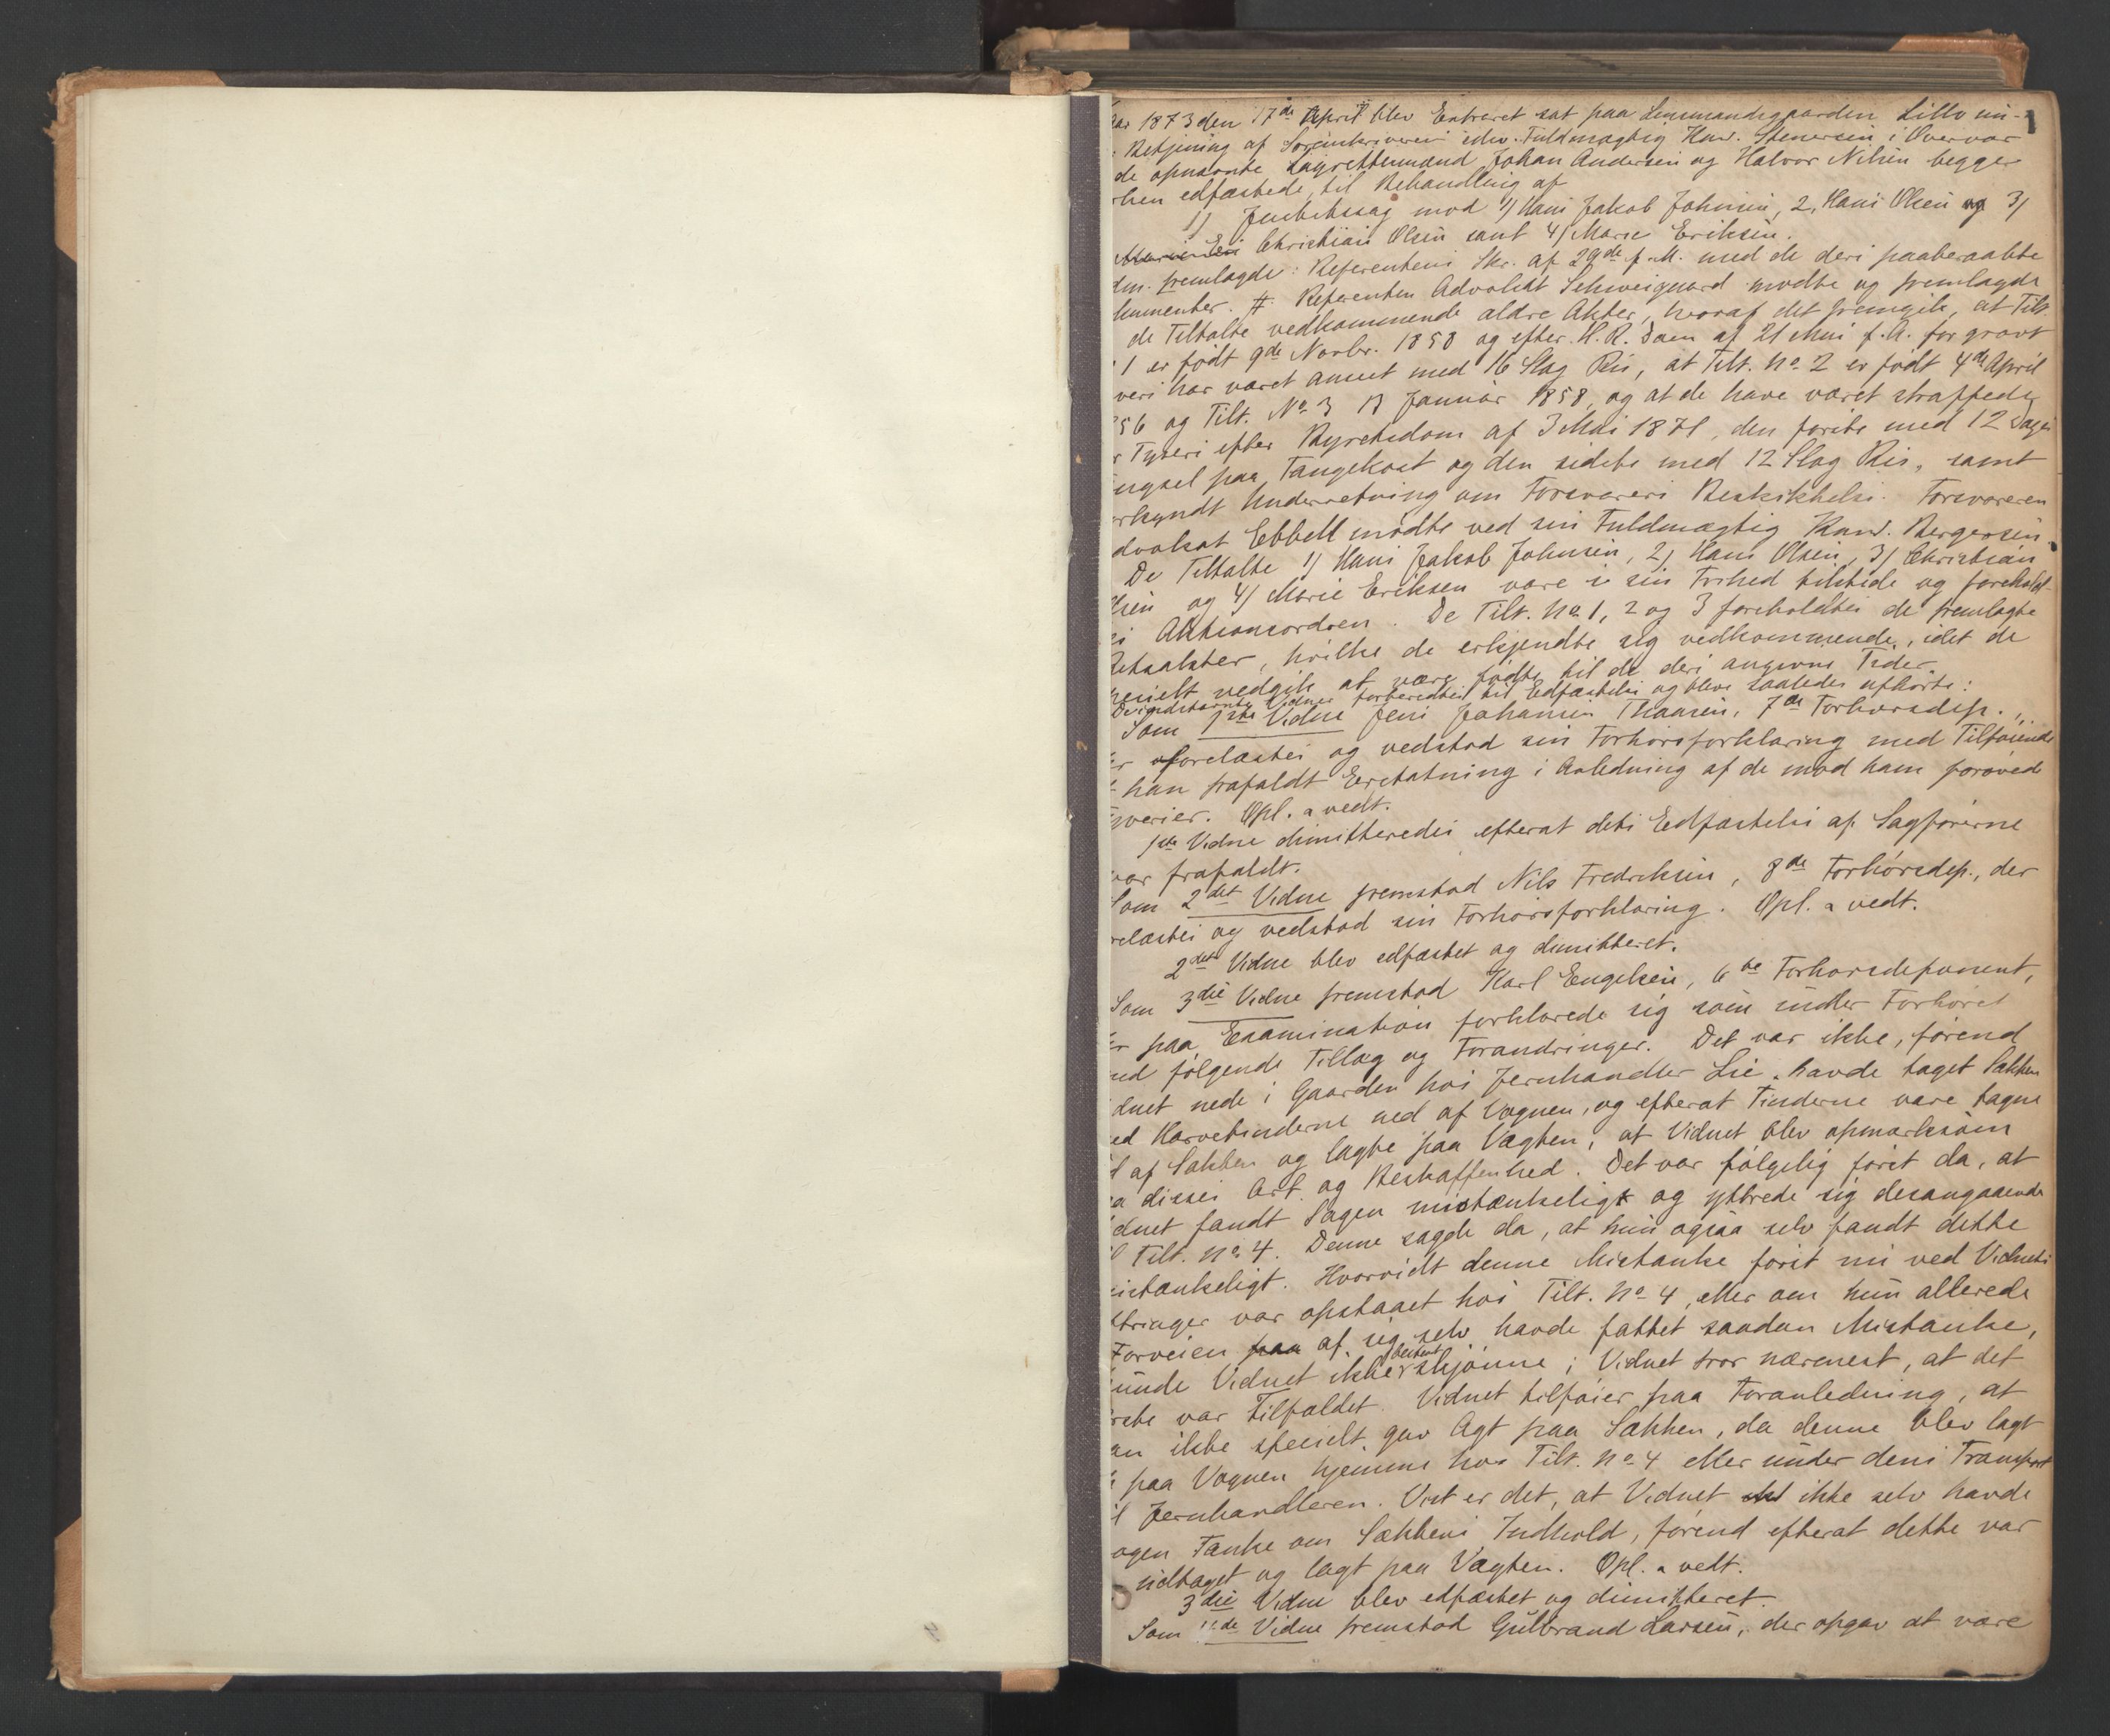 1
Aar 1873 den 17de April blev Extraret sat paa Lensmandsgaarden Lillo un-
Betjening af Sorenskriveren edsv. Fuldmægtig Kand. Stenersen i Overvær
de opnævnte Lagrettemænd Johan Andersen og Halvor Nilsen begger
rhen edfæstede, til Behandling af
1) Justitssag mod 1) Hans Jakob Johnsen, 2, Hans Olsen og 3)
Christian Olsen samt 4) Marie Eriksen.
dm. fremlagde: Referentens Skr. af 29de f. M. med de deri paaberaabte
kumenter. Referenten Advokat Schweigaard mødte og fremlagde
de Tiltalte vedkommende ældre Akter, hvoraf det fremgik, at Tilt.
1 er født 9de Novbr. 1858 og efter H. R. Dom af 21 Mai f. A. for grovt
veri har været anseet med 16 Slag Ris, at Tilt. No 2 er født 4de April
856 og Tilt. No 3 13 Januar 1858, og at de have været straffede
r Tyveri efter Byretsdom af 3 Mai 1871, den første med 12 Dages
ngsel paa Fangekost og den sidste med 12 Slag Ris, samt
rkyndt Underretning om Forsvarers Beskikkelse. Forsvareren
dvokat Ebbell mødte ved sin Fuldmægtig Kand. Bergersen.
De Tiltalte 1) Hans Jakob Johnsen, 2) Hans Olsen, 3) Christian
lsen og 4) Marie Eriksen vare i sin Frihed tilstede og foreholdt-
s Aktionsordren. De Tilt. No 1, 2 og 3 foreholdtes de fremlagte
Retsakter, hvilke de erkjendte sig vedkommende, idet de
specielt vedgik at være fødte til de deri angivne Tider.
De indstevnte Vidner forberedtes til Edfæstelse og bleve saaledes afhørte:
Som 1ste Vidne Jens Johansen Thaasen, 7de Forhørsdep.,
r forelæstes og vedstod sin Forhørsforklaring med Tilføiende
t han frafaldt Erstatning i Anledning af de mod ham forøvede
yverier. Opl. & vedt.
1ste Vidne dimitteredes efterat dets Edfæstelse af Sagførerne
var frafaldt.
Som 2det Vidne fremstod Nils Fredriksen, 8de Forhørsdep., der
relæstes og vedstod sin Forhørsforklaring. Opl. & vedt.
2det Vidne blev edfæstet og dimitteret.
Som 3die Vidne fremstod Karl Engelsen, 6te Forhørsdeponent,
er paa Examination forklarede sig som under Forhøret
ed følgende Tillæg og Forandringer. Det var ikke, førend
dnet nede i Gaarden hos Jernhandler Lie havde taget Sækken
ed Harvetinderne ned af Vognen, og efterat Tinderne vare tagne
d af Sækken og lagte paa Vægten, at Vidnet blev opmærksom
a disses Art og Beskaffenhed. Det var følgelig først da, at
dnet fandt Sagen mistænkelig og yttrede sig desangaaende
l Tilt. No 4. Denne sagde da, at hun ogsaa selv fandt dette
istænkeligt. Hvorvidt denne Mistanke først nu ved Vidnets
ttringer var opstaaet hos Tilt. No 4, eller om hun allerede
Forveien paa af sig selv havde fattet saadan Mistanke,
unde Vidnet ikke bestemt skjønne; Vidnet tror nærmest, at det
rste var Tilfældet. Vidnet tilføier paa Foranledning, at
an ikke specielt gav Agt paa Sækken, da denne blev lagt
paa Vognen hjemme hos Tilt. No 4 eller under dens Transport
l Jernhandleren. Vist er det, at Vidnet ikke selv havde
ogen Tanke om Sækkens Indhold, førend efterat dette var
udtaget og lagt paa Vægten. Opl. & vedt.
3die Vidne blev edfæstet og dimitteret.
Som 4de Vidne fremstod Gulbrand Larsen, der opgav at være